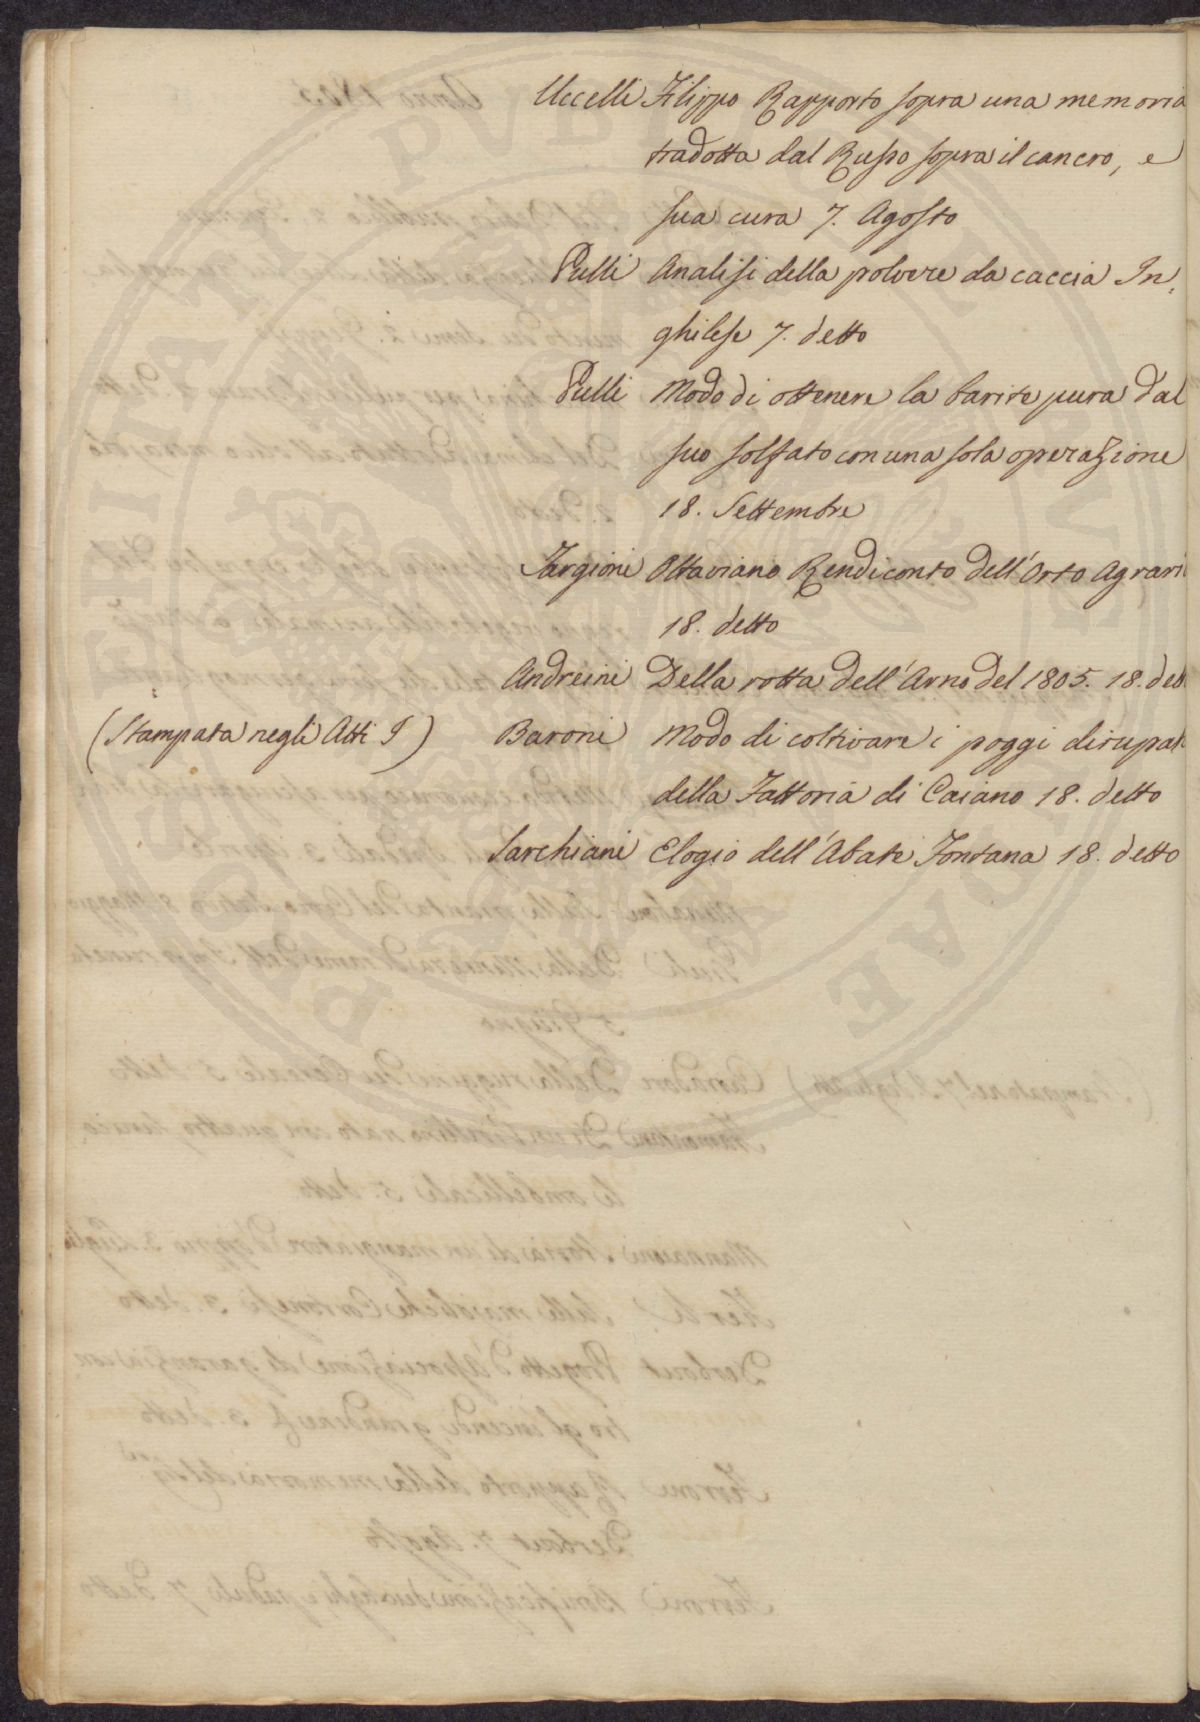 Uccelli Filippo Rapporto sopra una memoria
tradotta dal Russo sopra il cancro, e
sua cura 7. Agosto
Pulli Analisi della polvere da caccia In,
ghilese 7. detto
Pulli Modo di ottenere la barite pura dal
suo solfato con una sola operazione
18. Settembre
Targioni Ottaviano Rendiconto dell'Orto Agrari
18. detto
Andreini Della rotta dell'Arno del 1805. 18. dett
(Stampata negli Atti I) Baroni Modo di coltivare i poggi dirupat
della Fattoria di Caiano 18. detto
Sarchiani Elogio dell'Abate Fontana 18. detto